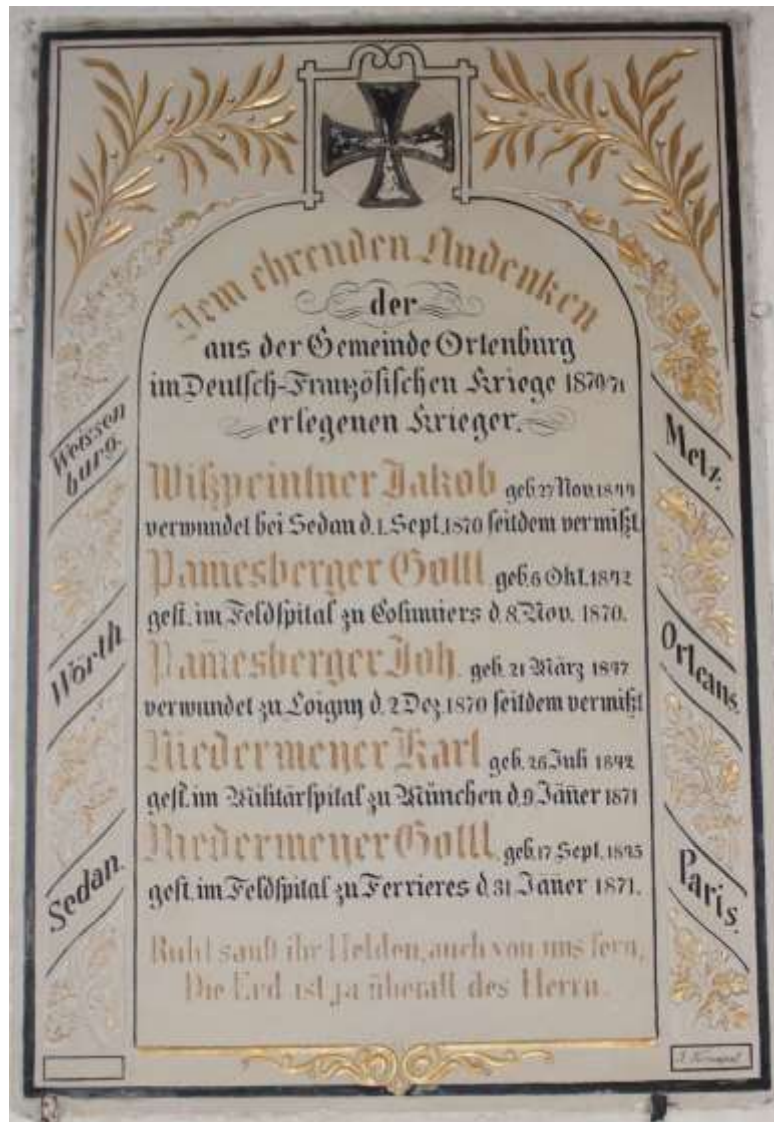 Dem ehrenden Andenken
der
aus der Gemeinde Ortenburg
im Deutsch-Französischen Kriege 1870/71
erlegenen Krieger.
Wißpeintner Jakob geb. 27 Nov. 1844
verwundet bei Sedan d. 1. Sept. 1870 seitdem vermißt
Pamesberger Gottl geb. 6 Okt. 1842
gest. im Feldspital zu d. 8. Nov. 1870.
Pamesberger Joh. geb. 21 März 1847
verwundet zu Loigny d. 2 Dez. 1870 seitdem vermißt
Niedermeyer Karl geb. 26 Juli 1842
gest. im Militärspital zu München d. 9 Jäner 1871
Niedermeyer Gottl. geb. 17 Sept. 1845
gest. im Feldspital zu Ferrieres d. 31 Jäner 1871.
Ruht sanft ihr Helden, auch von uns fern,
Die Erd ist ja überall des Herrn.
Weissen
burg.
Wörth
Sedan.
Metz.
Orleans.
Paris.